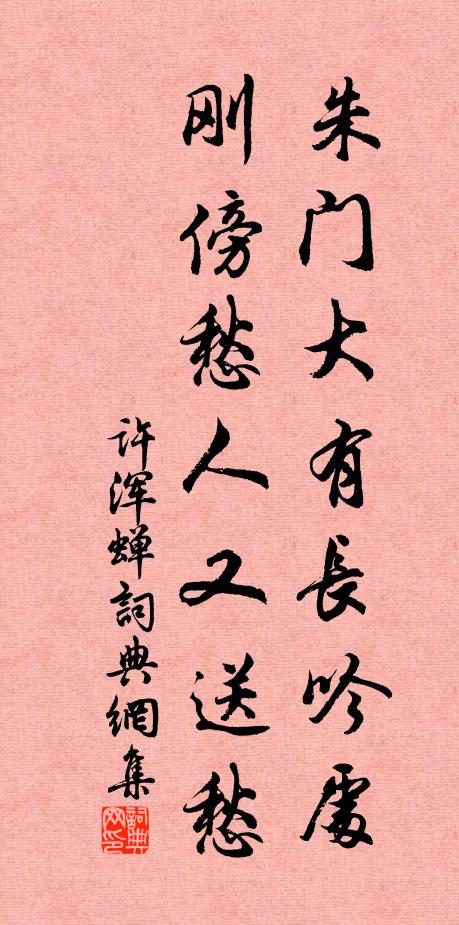 朱门大有長吟處
刚傍愁人又送愁
许浑蝉詞典網集
詞典网印